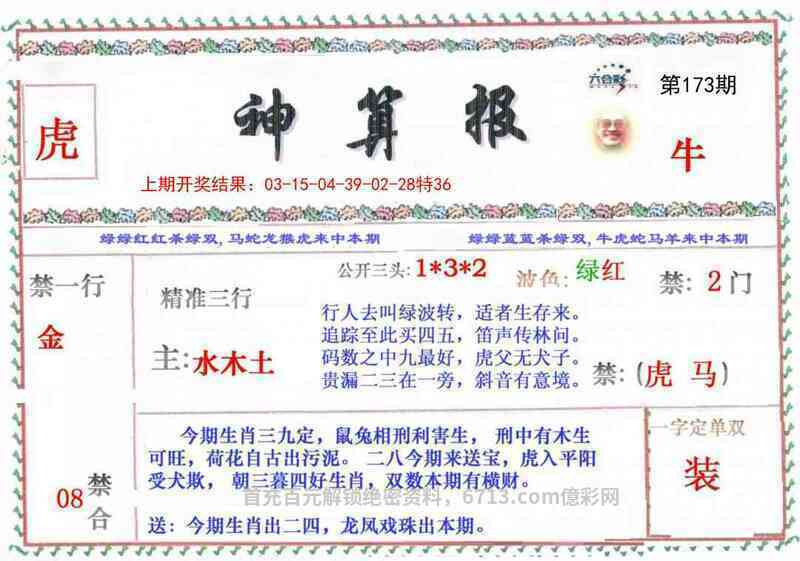 六合彩
第173期
虎
神算报
牛
上期开奖结果：03-15-04-39-02-28特36
绿绿红红杀绿双,马蛇龙猴虎来中本期
绿绿蓝蓝杀绿双,牛虎蛇马羊来中本期
禁一行
金
精准三行
主:水木土
公开三头:1*3*2
波色:绿红
禁:2门
行人去叫绿波转，适者生存来。
追踪至此买四五，笛声传林问。
码数之中九最好，虎父无犬子。
贵漏二三在一旁，斜音有意境。
禁:(虎 马)
08
禁合
今期生肖三九定，鼠兔相刑利害生， 刑中有木生
可旺，荷花自古出污泥。 二八今期来送宝，虎入平阳
受犬欺， 朝三暮四好生肖，双数本期有横财。
首充百元解锁绝密资料，6713.com億彩网
送：今期生肖出二四，龙凤戏珠出本期。
一字定单双
装